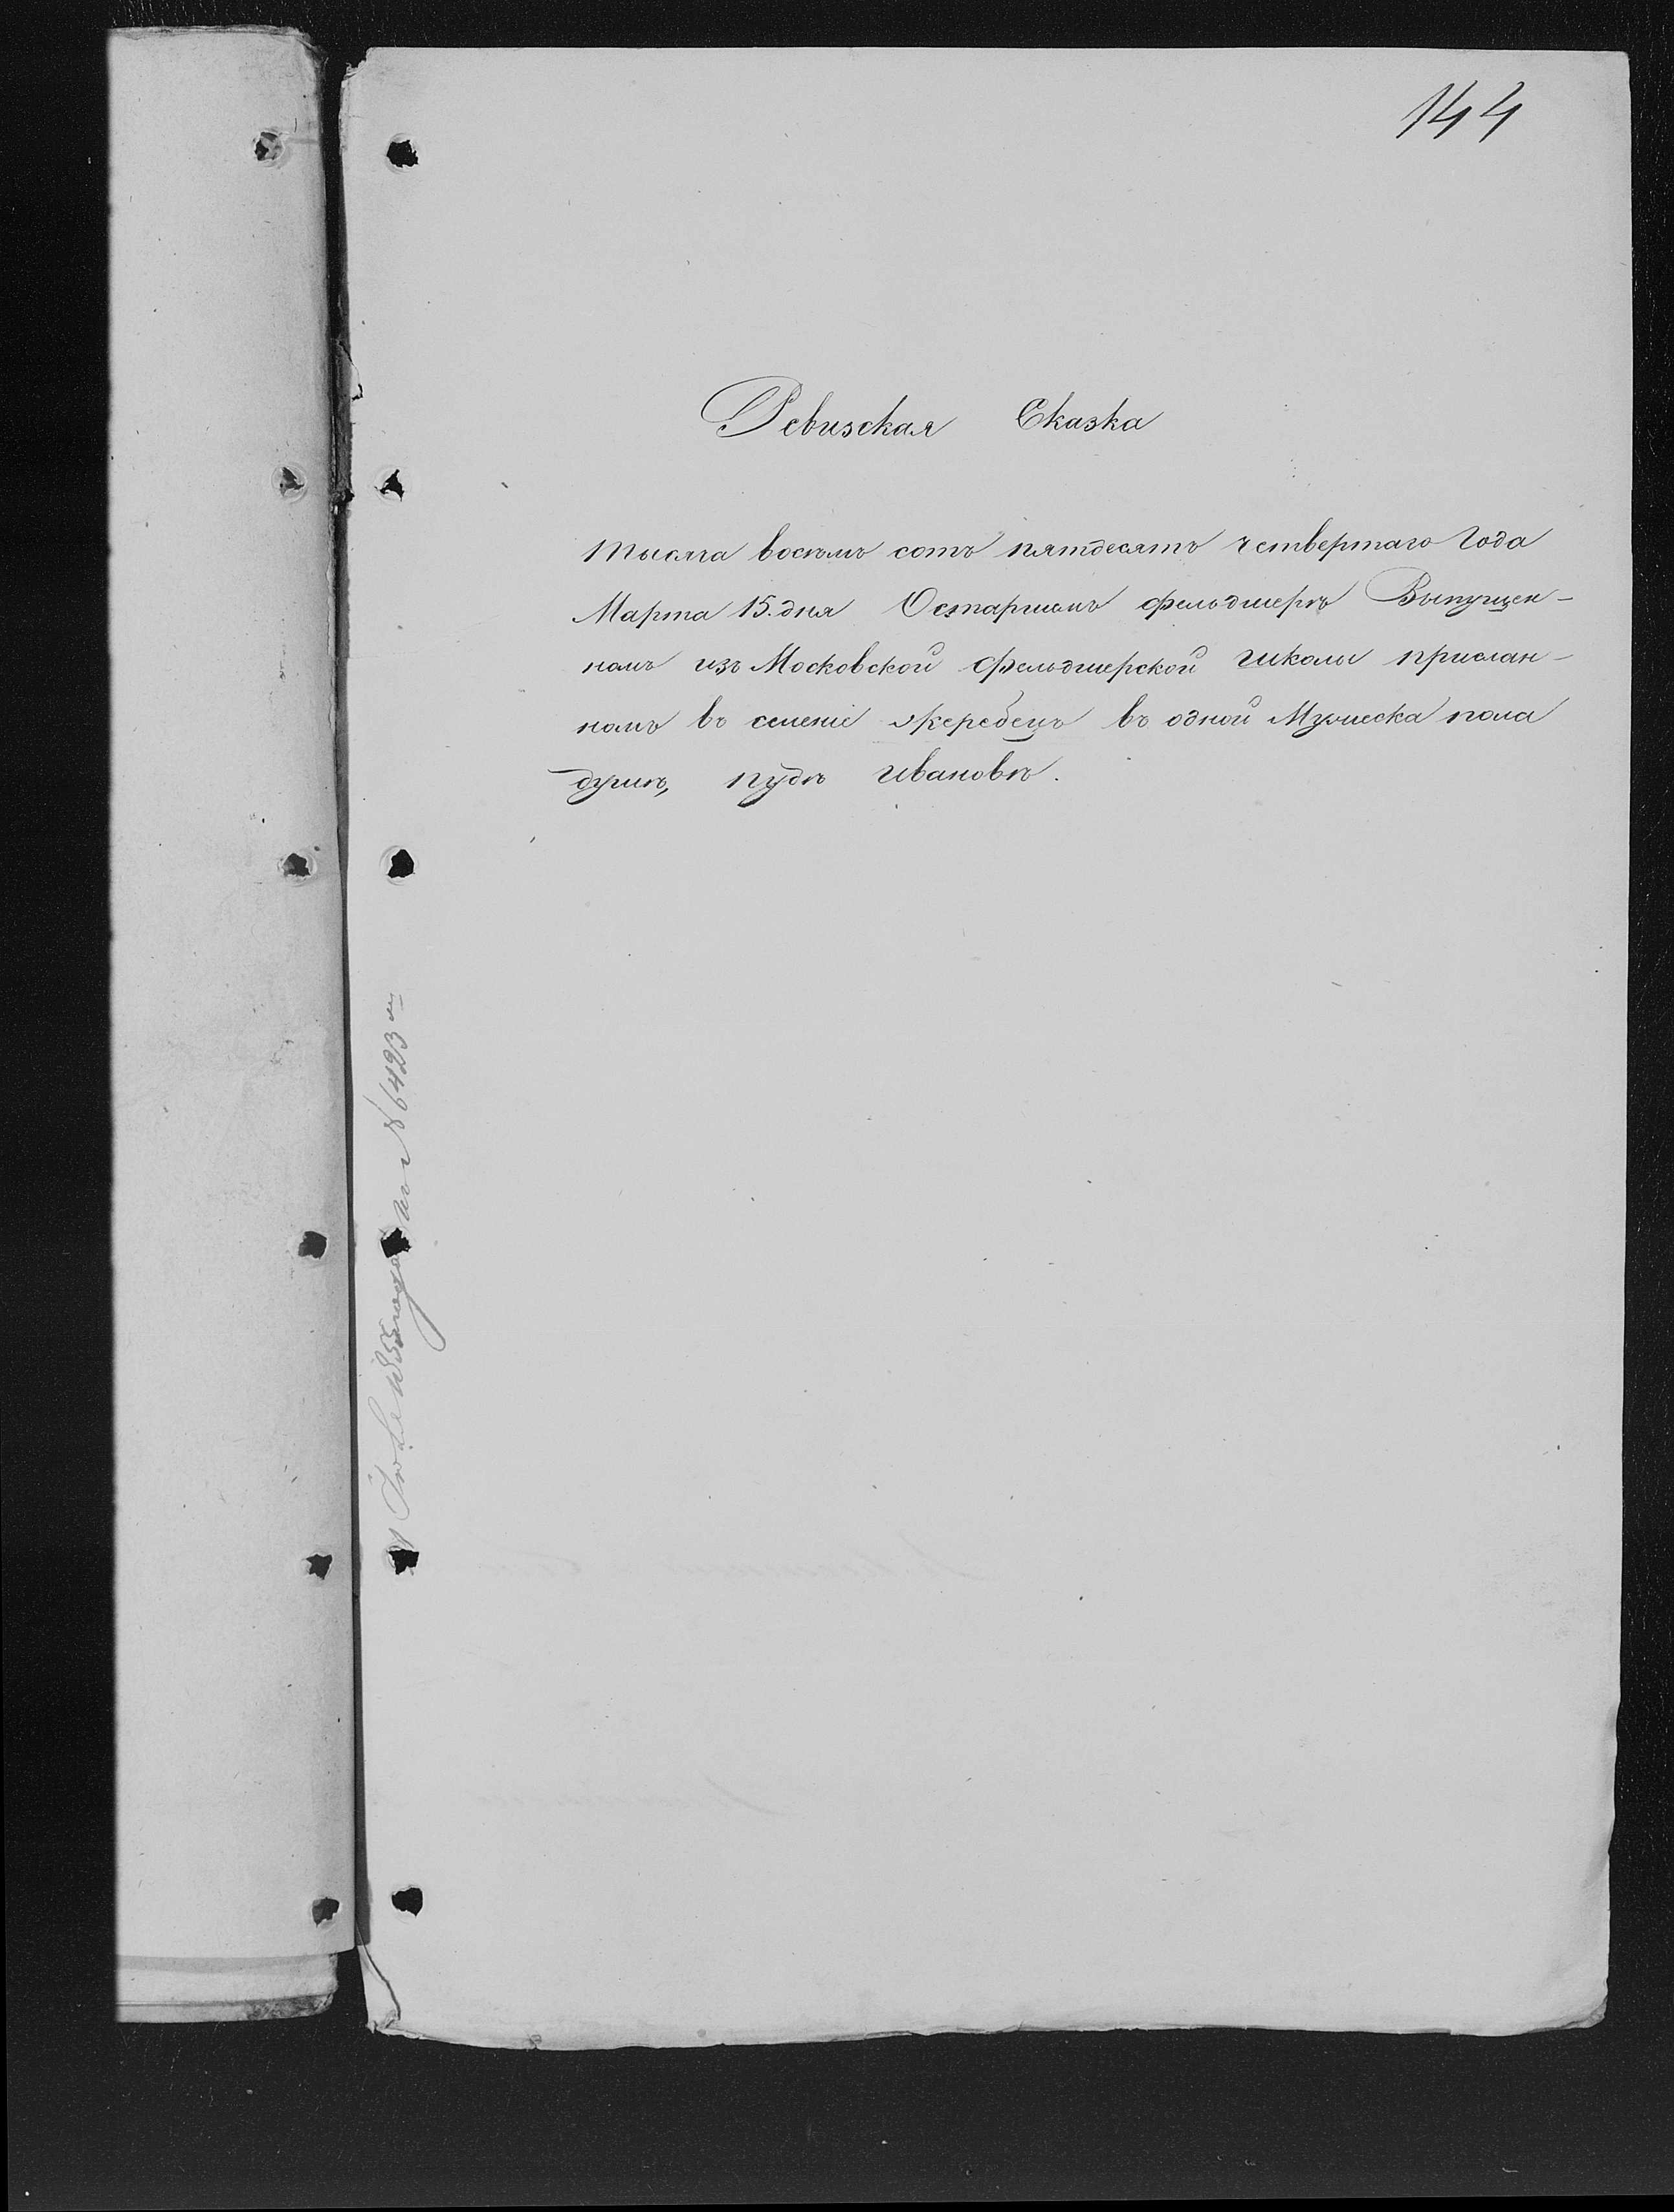 144
Ревизская Сказка
тысяча восемь сотъ пятдесятъ четвертаго Года
Марта 15. дня Остаршемъ фельдшерѣ Выпущен-
номъ изъ Московской фельдшерской школы прислан-
номъ въ селенiе жеребецъ въ одной Мужеска пола
душѣ, нудѣ ивановѣ.
№ 6423